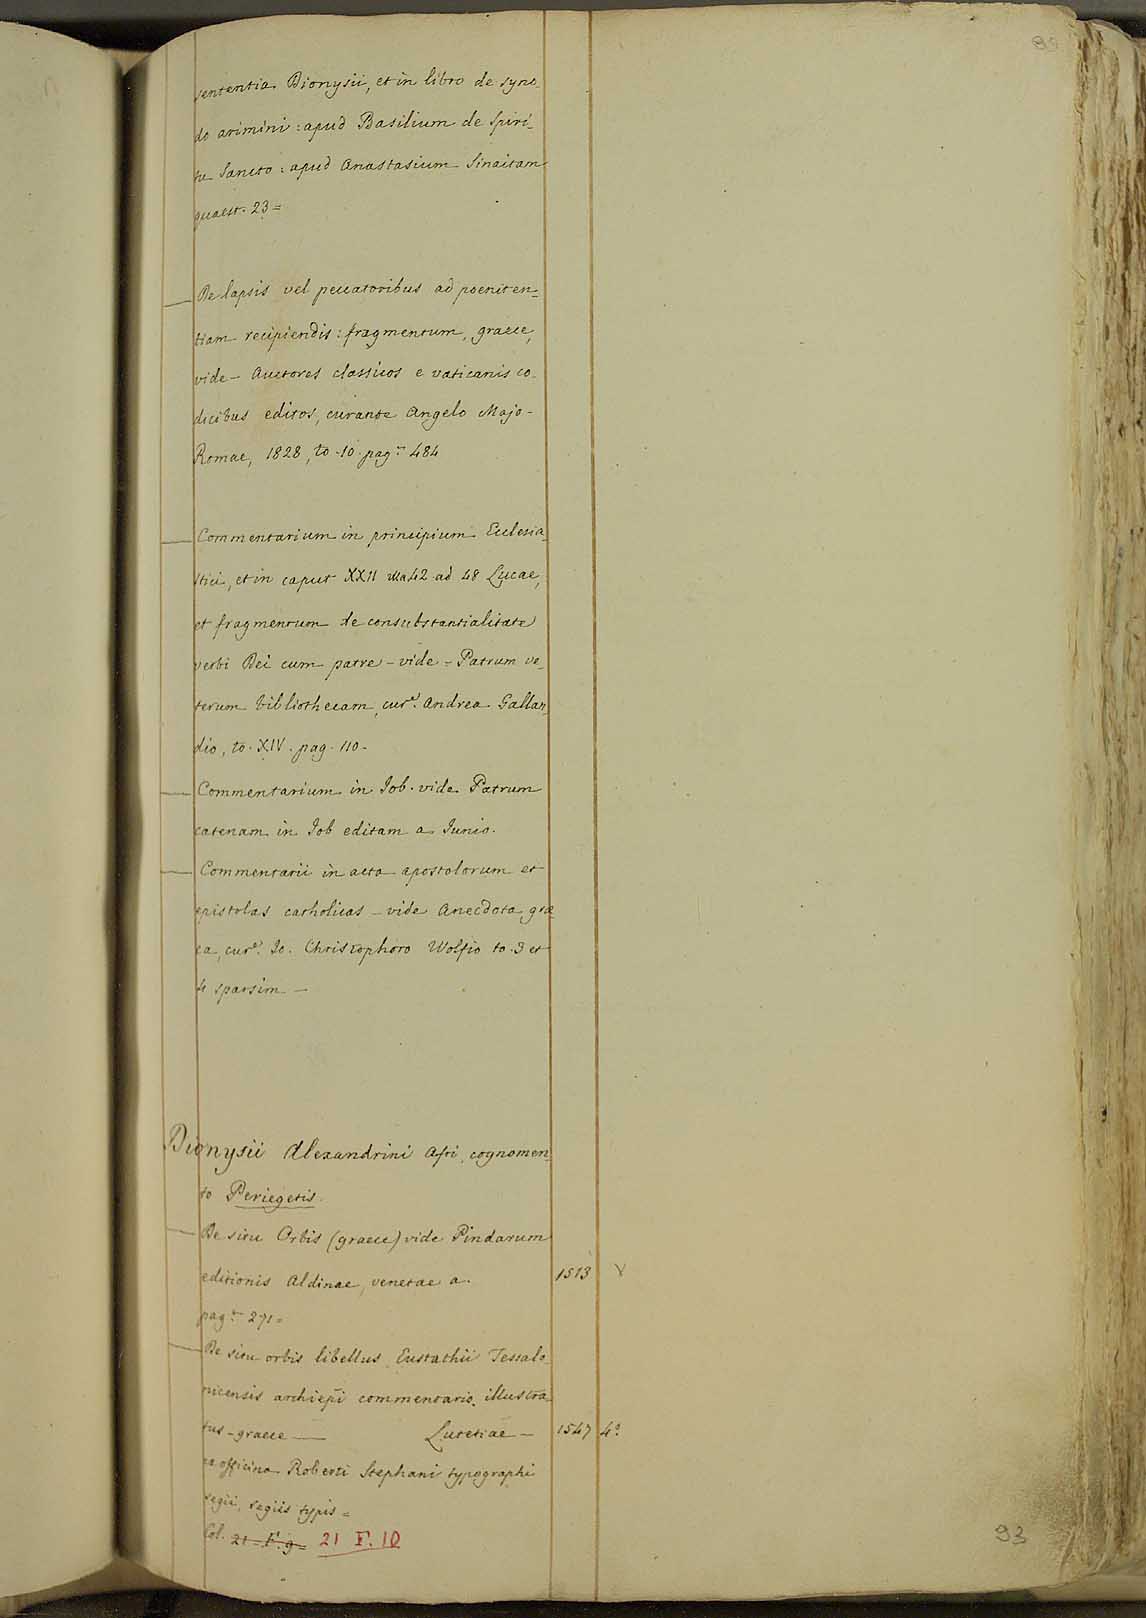 sententia Dionysii, et in libro de syno-
do arimini : apud Basilium de Spiri-
tu Sancto : apud Anastasium Sinaitam
quaest. 23 =
De lapsis vel peccatoribus ad poeniten-
tiam recipiendis : fragmentum, graece,
vide - Auctores classicos e vaticanis co-
dicibus editos, curante Angelo Majo -
Romae, 1828, to. 10. pag. 484
Commentarium in principium Ecclesia-
stici, et in caput XXII 42 ad 48 Lucae,
et fragmentum de consubstantialitate
verbi Dei cum patre - vide - Patrum ve-
terum bibliothecam, cur.e Andrea Gallan-
dio, to. XIV. pag. 110 -
Commentarium in Job. vide Patrum
catenam in Job editam a Junio.
Commentarii in acta apostolorum et
epistolas catholicas - vide Anecdota grae-
ca, cur.e Jo. Christophoro Wolfio to. 3 et
4 sparsim -
Dionysii Alexandrini Afri, cognomen-
to Periegetis.
De situ Orbis (graece) vide Pindarum
editionis Aldinae, venetae a. 1513 V
pag. 271 =
De situ orbis libellus Eustathii Tessalo-
nicensis archiepi commentario illustra-
tus - graece — Lutetiae - 1547 4º
ex officina Roberti Stephani typographi
regii, regiis typis =
Col. 21 - F. 9 = 21 F. 10
93